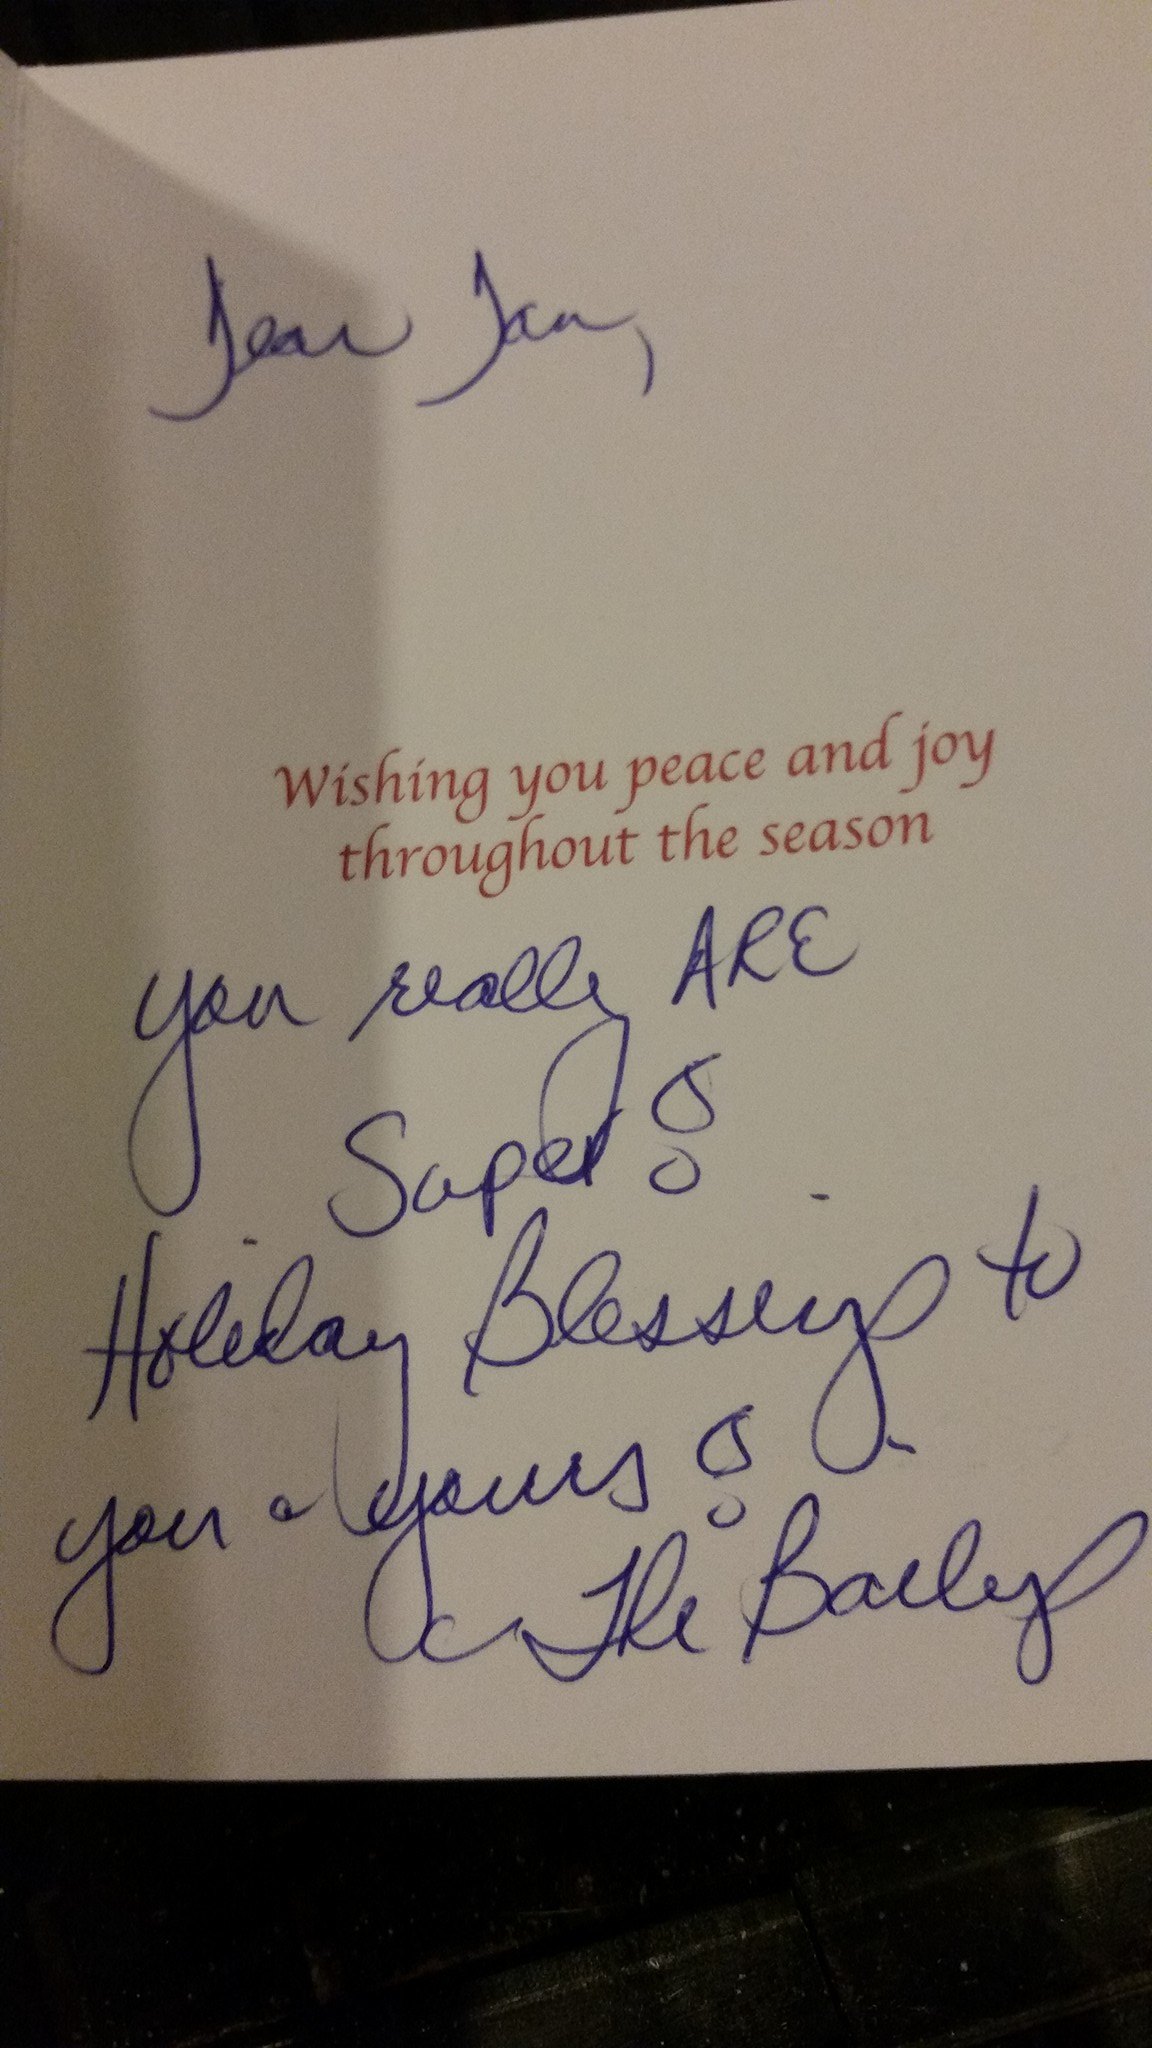 Dear Jan,
Wishing you peace and joy
throughout the season
you really ARE
Super!
Holiday Blessings to
you & yours!
~ The Baileys